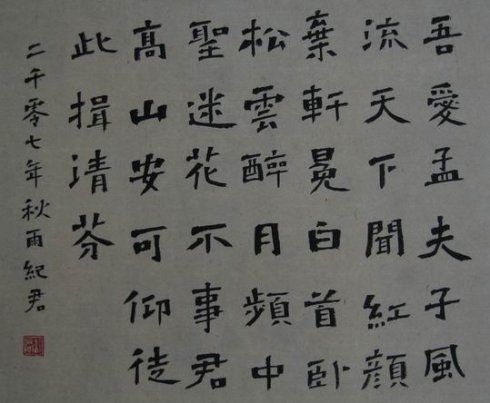 吾愛孟夫子風
流天下聞紅顔
棄軒冕白首卧
松雲醉月頻中
聖迷花不事君
高山安可仰徒
此揖清芬
二千零七年秋雨紀君